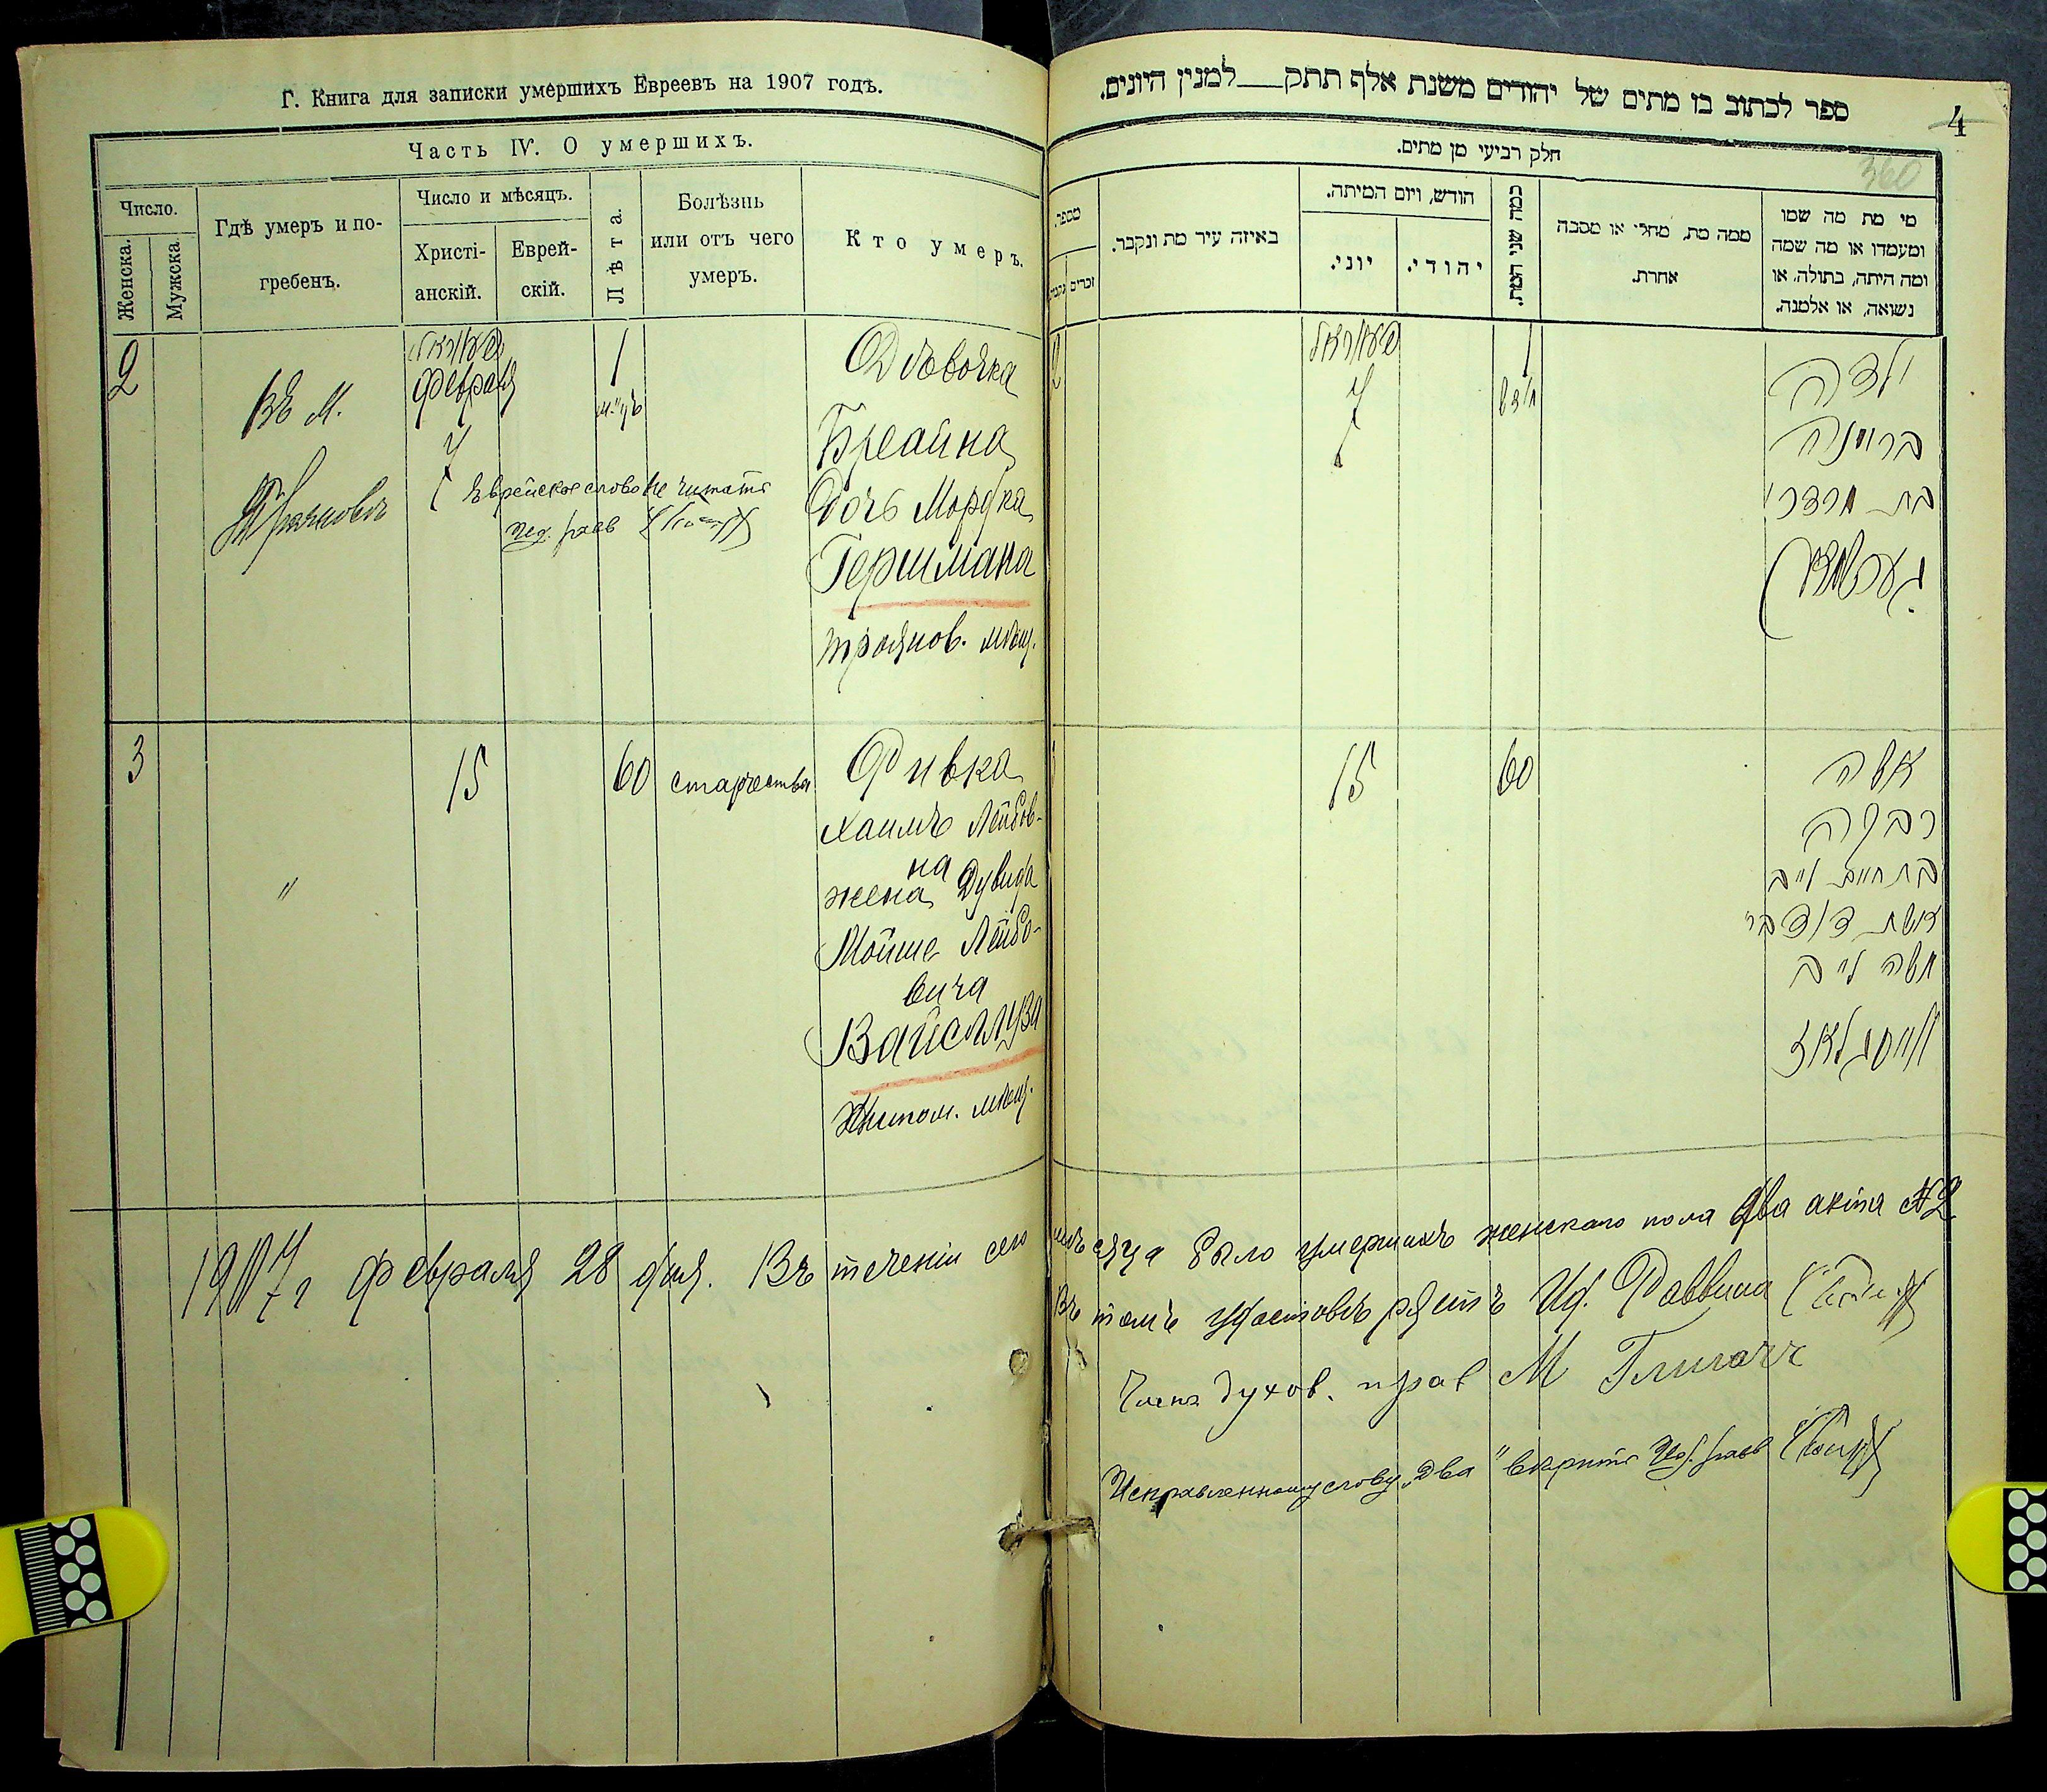 Г. Книга для записки умершихъ Евреевъ на 1907 годъ.
Часть IV. О умершихъ.
Число.
Женска.
Мужска.
Гдѣ умеръ и по-
гребенъ.
Число и мѣсяцъ.
Христі-
анскій.
Еврей-
скій.
Лѣта.
Болѣзнь
или отъ чего
умеръ.
Кто умеръ.
2
Въ м.
Трояновѣ
февраля
7
1
м-цъ
Еврейское слово не читать
Дѣвочка
Брайна
Дочь Мордка
Гершмана
троянов. мѣщ.
3
"
15
60
старчества
Ривка
Хаимъ Лейбов-
на
жена Дувида
Мойше Лейбо-
вича
Вайсглуза
Житом. мѣщ.
1907 г февраля 28 дня. Въ теченіи сего
ספר לכתוב בו מתים של יהודים משנת אלף תתק___למנין היונים.
4
360
חלק רביעי מן מתים.
מספר.
זכרים
נקבות
באיזה עיר מת ונקבר.
חודש, ויום המיתה.
יוני.
יהודי.
כמה שני המת.
ממה מת, מחלי או מסבה
אחרת.
מי מת מה שמו
ומעמדו או מה שמה
ומה היתה, בתולה, או
נשואה, או אלמנה.
2
פעװראל
7
1
ילדה
בריינה
בת מרדכי
גערשמאן
15
60
אשה
רבקה
בת חיים לייב
אשת דוד בר
משה לייב
ווייסגלאז
мѣсяца было умершихъ женскаго пола два акта № 2
Въ томъ удостовѣряетъ Ид. Раввина
Членъ духов. прав М
Исправленному слову "два" вѣрить